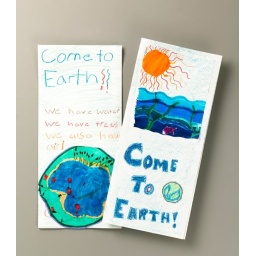 Come to
Earth!!
we have water
we have trees
we also have
air!
COME
TO
EARTH!